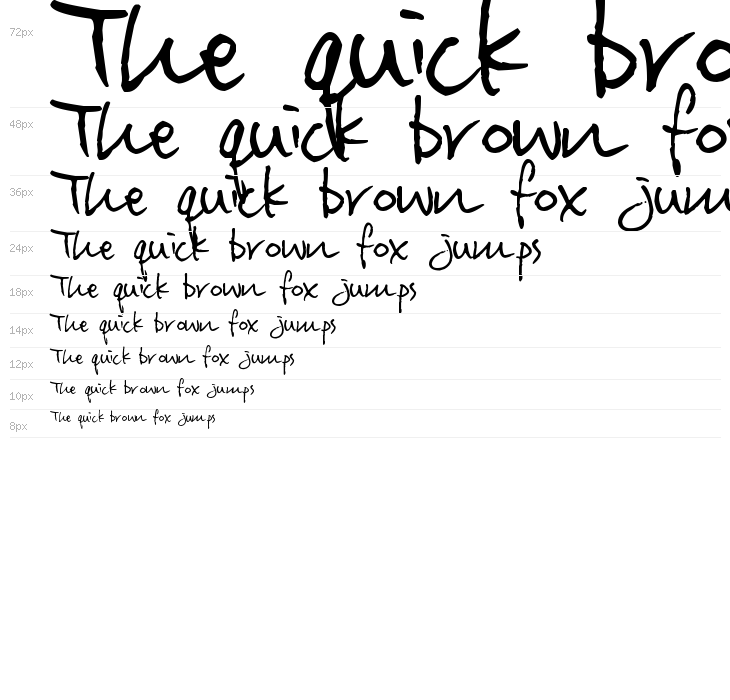 72px The quick bro
48px The quick brown fo
36px The quick brown fox jum
24px The quick brown fox jumps
18px The quick brown fox jumps
14px The quick brown fox jumps
12px The quick brown fox jumps
10px The quick brown fox jumps
8px The quick brown fox jumps